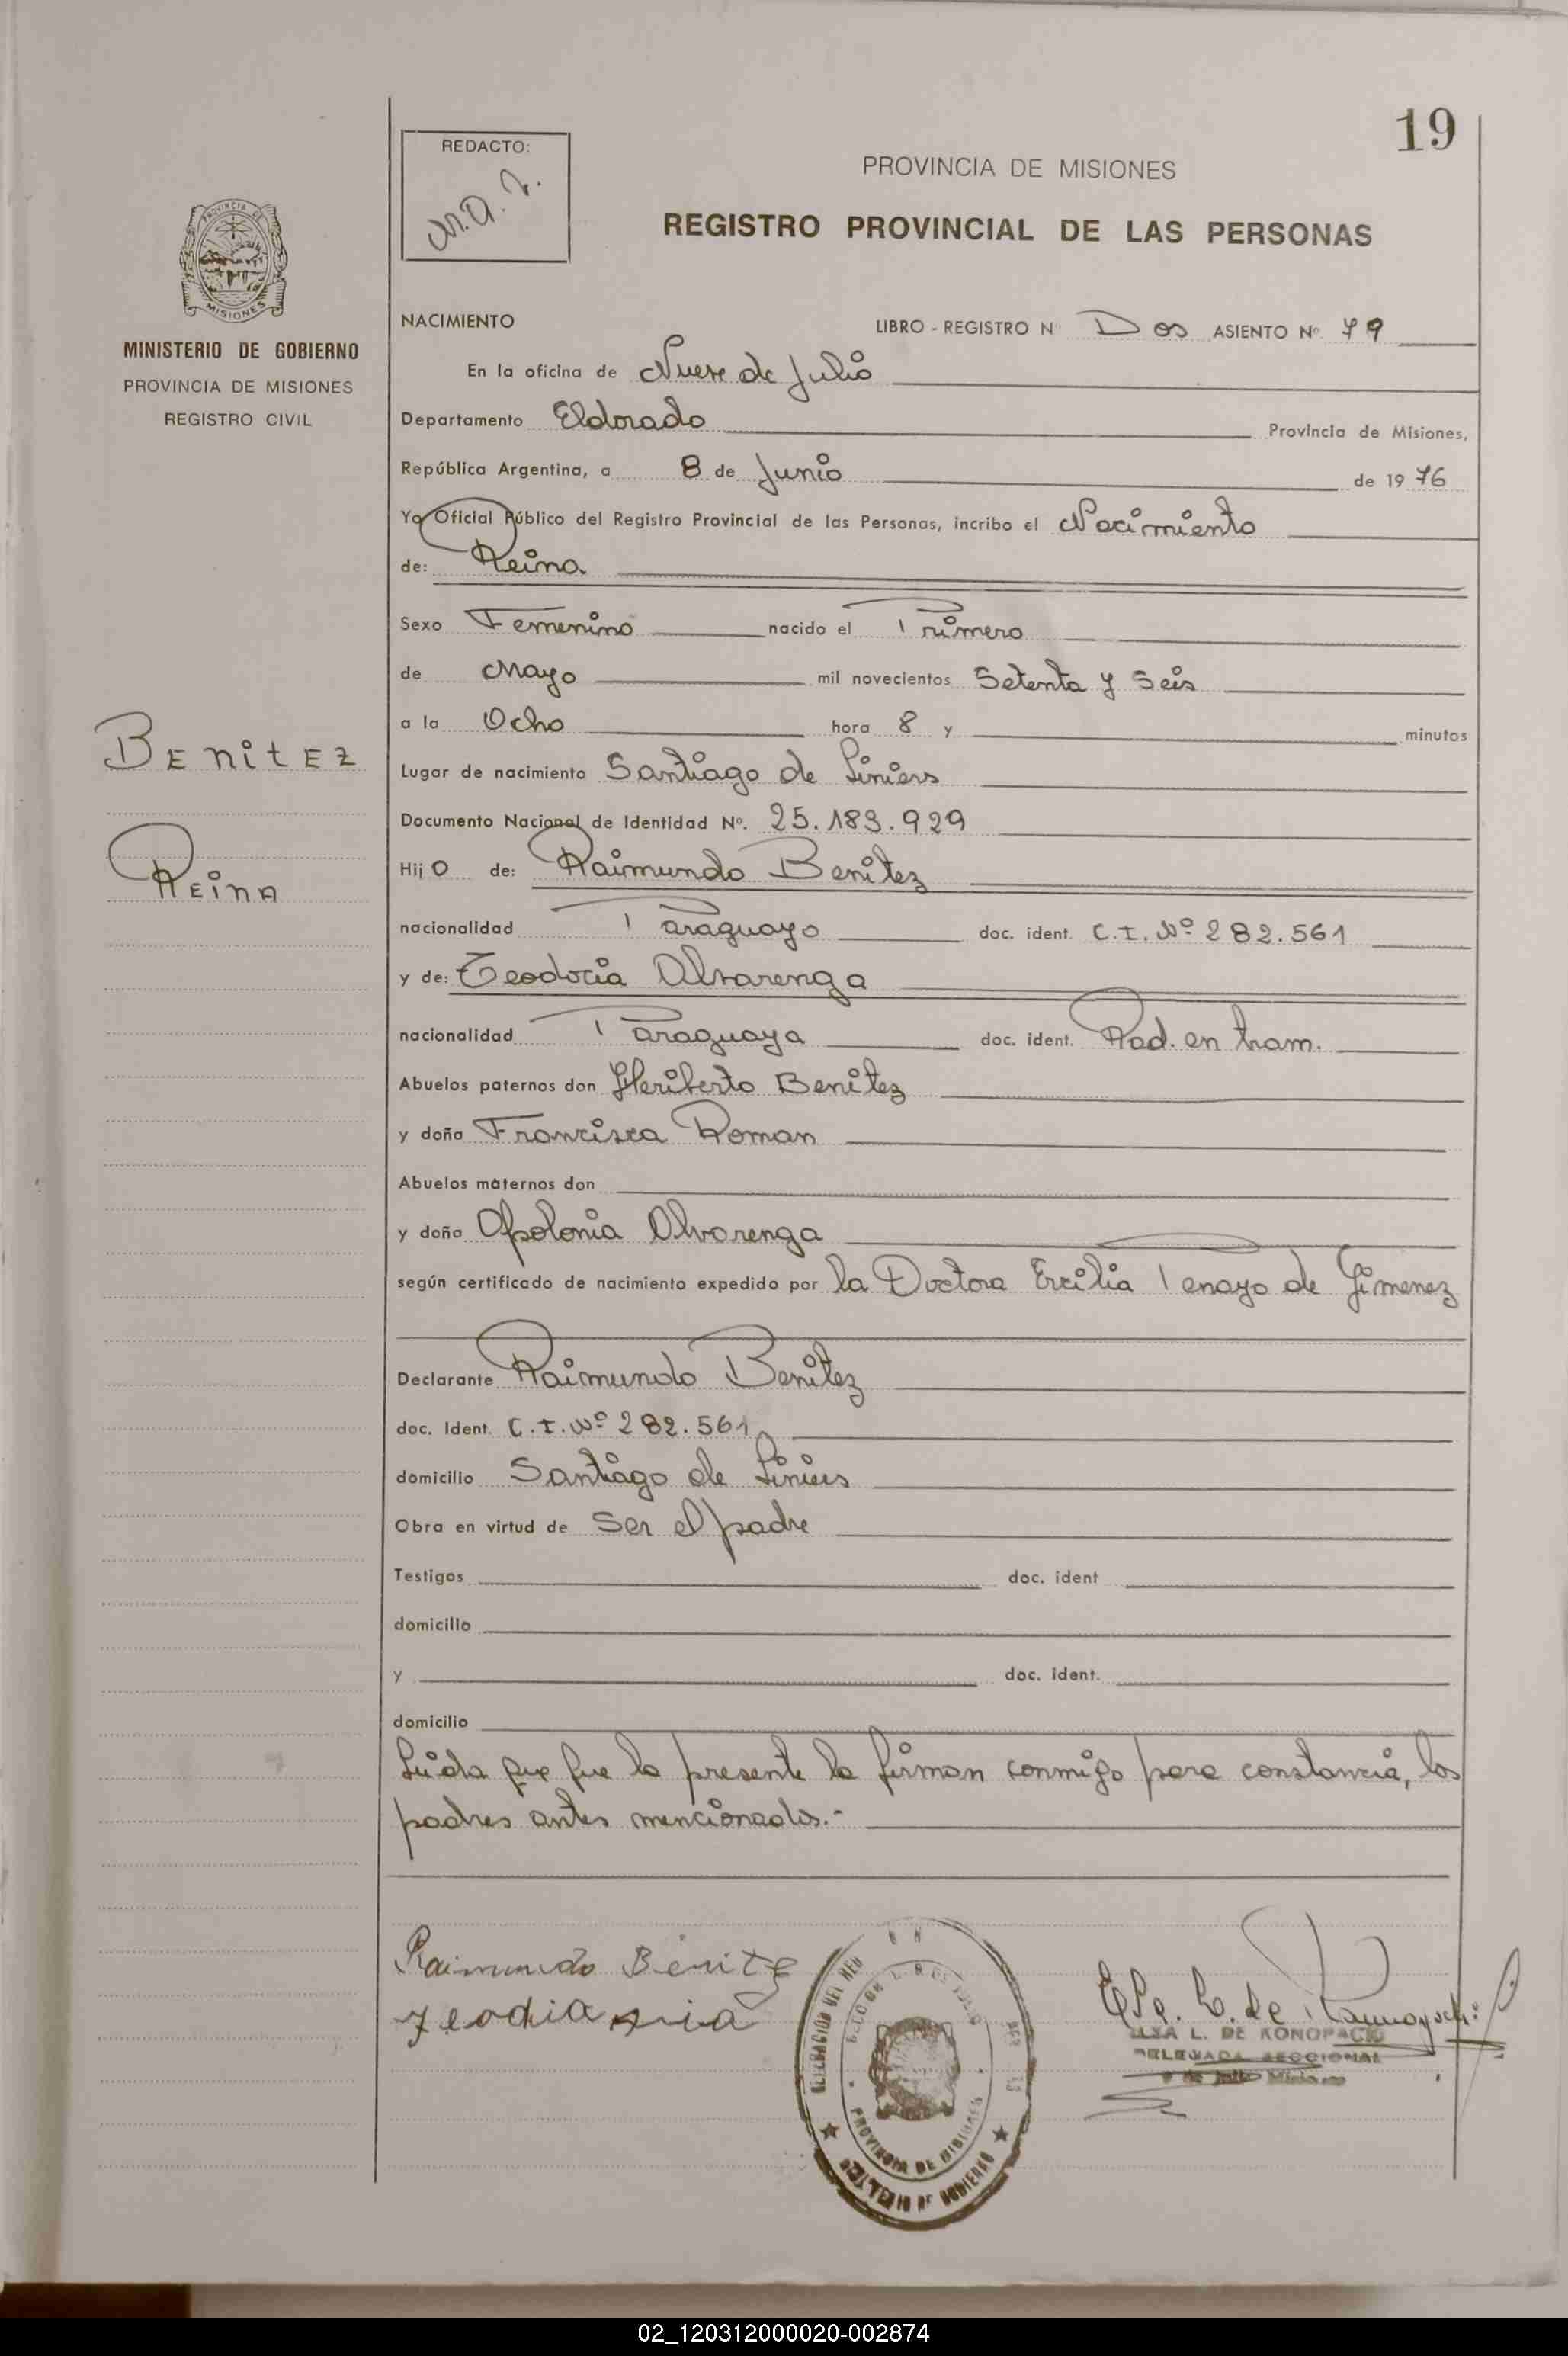 19
REDACTO:
PROVINCIA DE MISIONES
REGISTRO PROVINCIAL DE LAS PERSONAS
MISIONES
MINISTERIO DE GOBIERNO
PROVINCIA DE MISIONES
REGISTRO CIVIL
BENITEZ
REINA
NACIMIENTO LIBRO - REGISTRO Nº Dos ASIENTO Nº. 79
En la oficina de Nueve de Julio
Departamento Eldorado Provincia de Misiones,
República Argentina, a 8 de Junio de 1976
Yo Oficial Público del Registro Provincial de las Personas, incribo el Nacimiento
de: Reina.
Sexo Femenino nacido el Primero
de Mayo mil novecientos Setenta y Seis
a la Ocho hora 8 y minutos
Lugar de nacimiento Santiago de Liniers
Documento Nacional de Identidad Nº. 25.183.929
Hijo de: Raimundo Benitez
nacionalidad Paraguayo doc. ident. C.I. Nº 282.561
y de: Teodocia Alvarenga
nacionalidad Paraguaya doc. ident. Rad. en tram.
Abuelos paternos don Heriberto Benitez
y doña Francisca Roman
Abuelos maternos don
y doña Apolonia Alvarenga
según certificado de nacimiento expedido por la Doctora Ercilia Penayo de Gimenez
Declarante Raimundo Benitez
doc. Ident. C.I. Nº 282.561
domicilio Santiago de Liniers
Obra en virtud de Ser el padre
Testigos doc. ident
domicilio
y doc. ident.
domicilio
Leida que fue la presente la firman conmigo para constancia, los
padres antes mencionados.-
Raimundo Benitez
PROVINCIA DE MISIONES
MINISTERIO DE GOBIERNO
L. DE KONOPACKI
DELEGADA SECCIONAL
9 de Julio Misiones
02_120312000020-002874